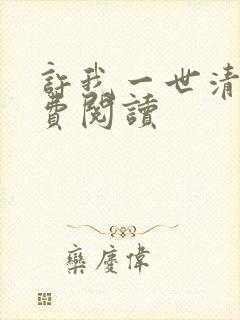 許我一世清
費閱讀
欒慶偉